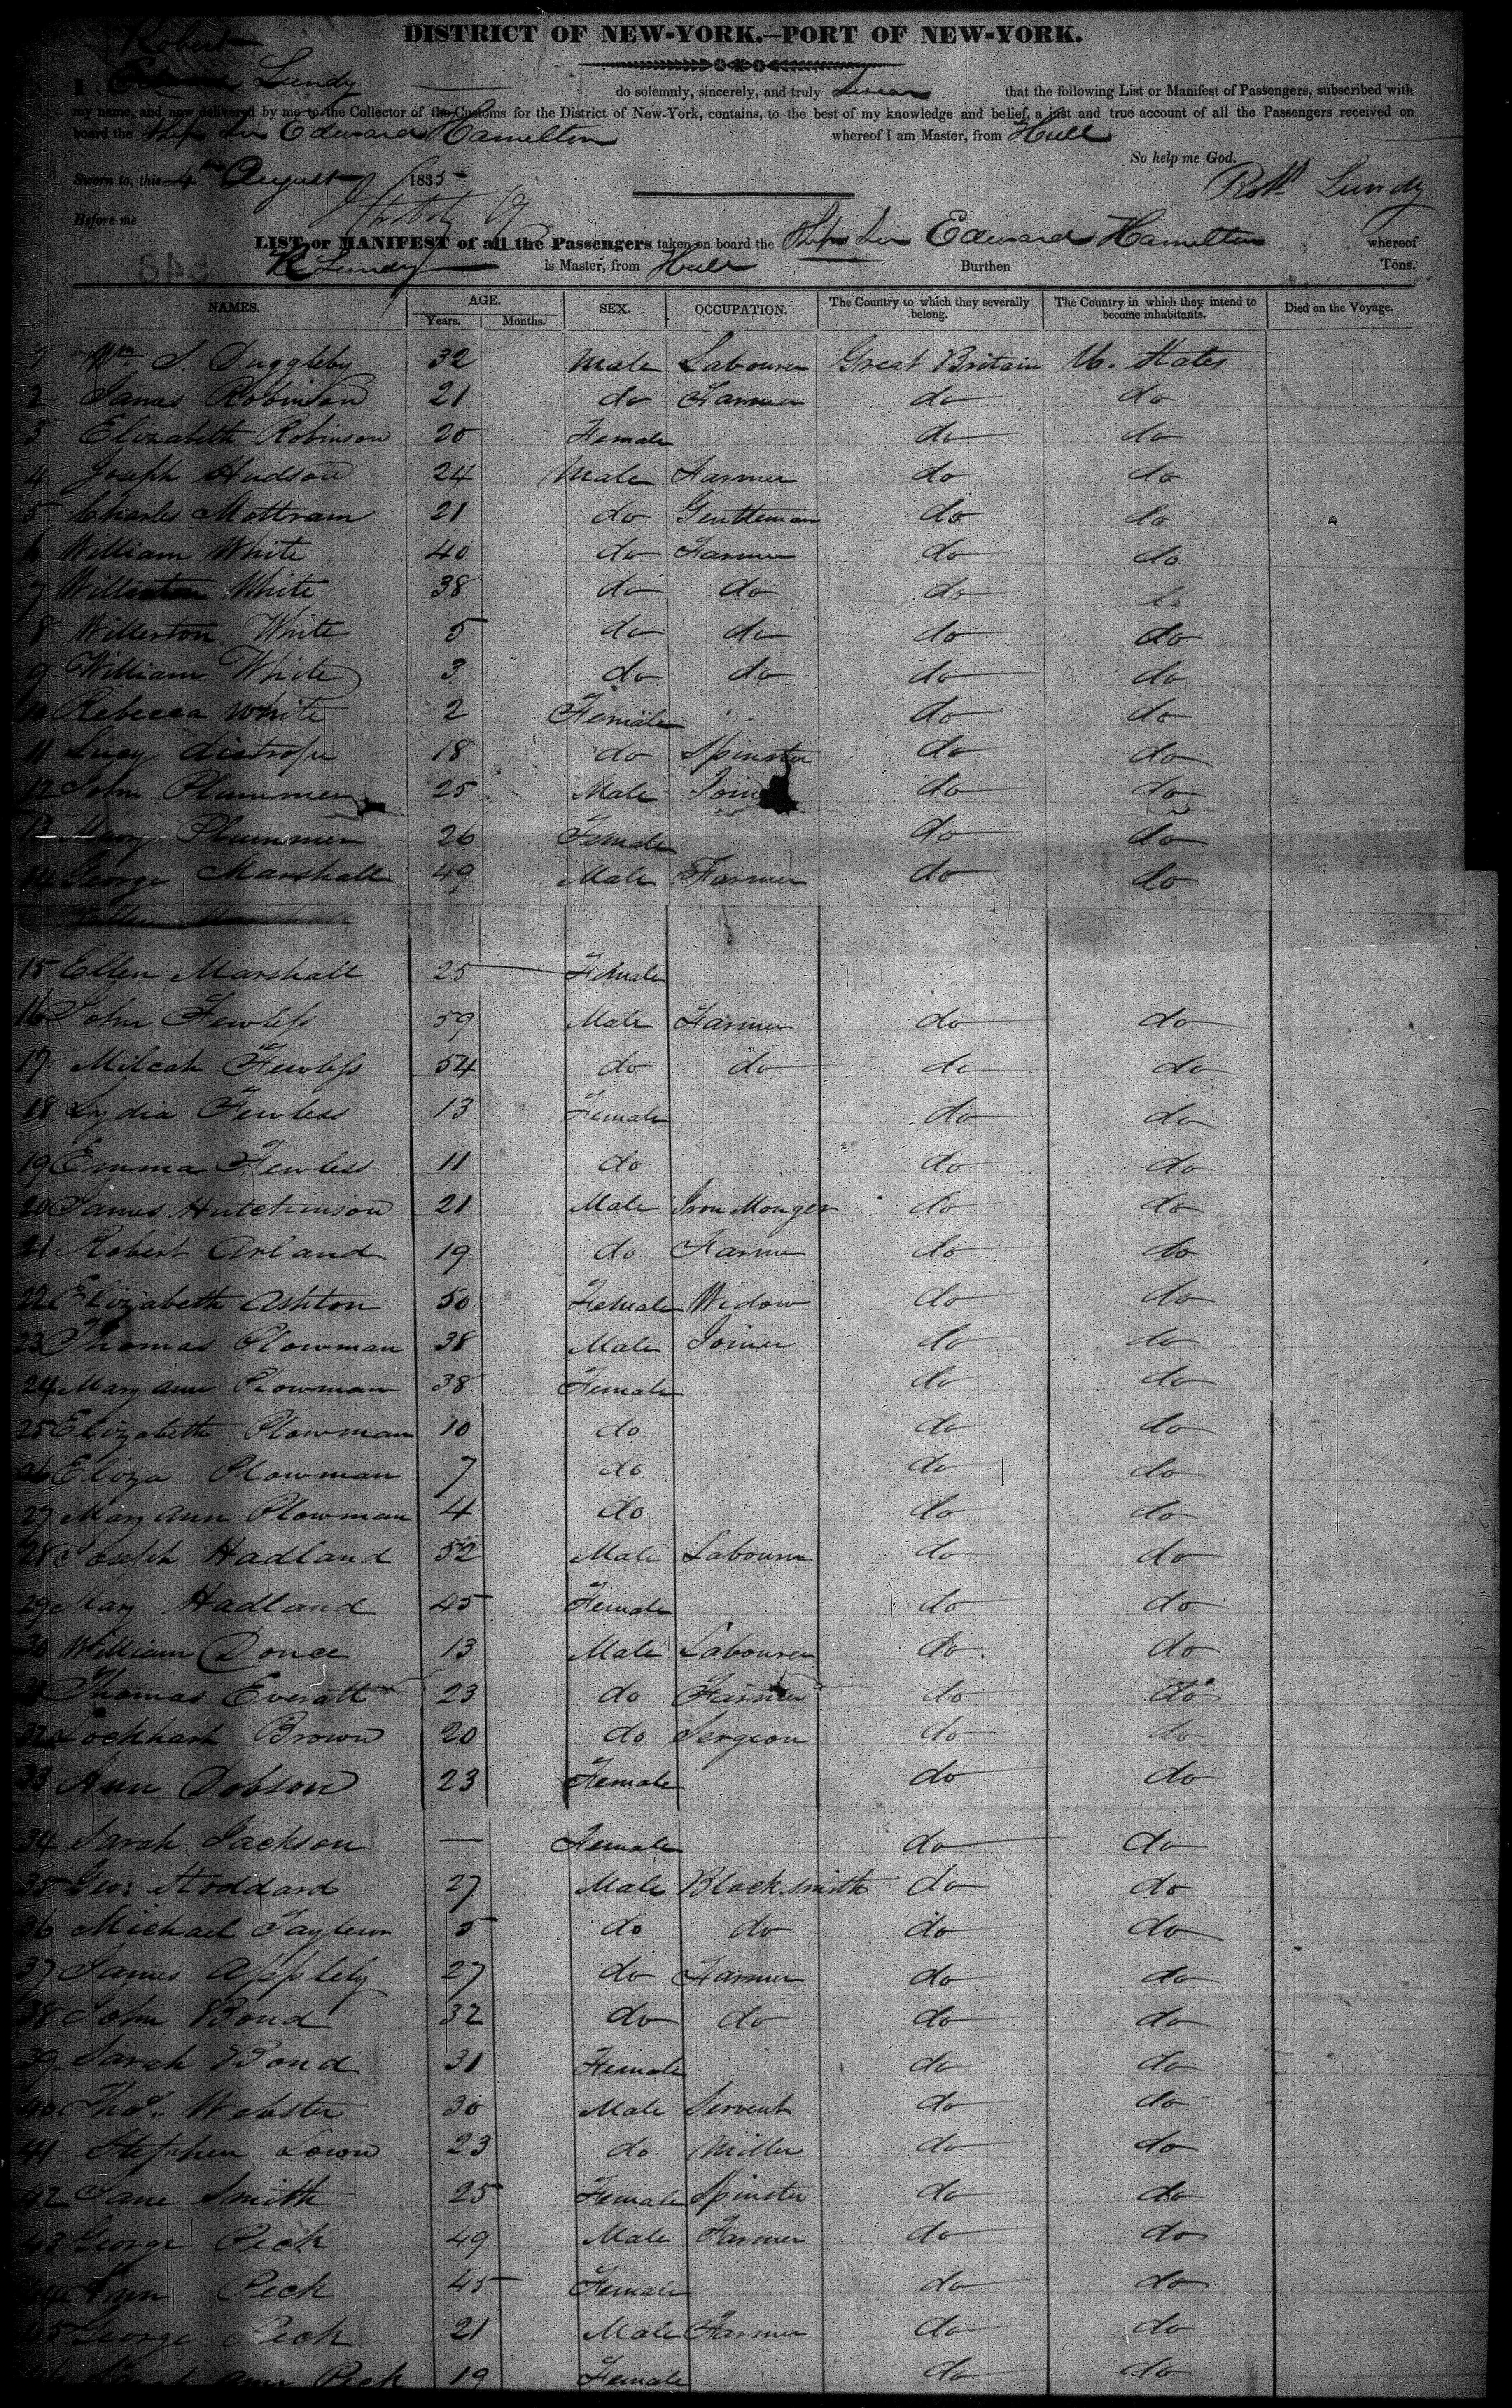 DISTRICT OF NEW-YORK.—PORT OF NEW-YORK.
Robert
I Lundy do solemnly, sincerely, and truly Swear that the following List or Manifest of Passengers, subscribed with
my name, and now delivered by me to the Collector of the Customs for the District of New-York, contains, to the best of my knowledge and belief, a just and true account of all the Passengers received on
board the Ship Sir Edward Hamilton whereof I am Master, from Hull
So help me God.
Sworn to, this 4th August 1835 Robt Lundy
Before me
LIST or MANIFEST of all the Passengers taken on board the Ship Sir Edward Hamilton whereof
R Lundy is Master, from Hull Burthen Tons.
NAMES. AGE. Years. Months. SEX. OCCUPATION. The Country to which they severally belong. The Country in which they intend to become inhabitants. Died on the Voyage.
1 Wm S. Duggleby 32 Male Labourer Great Britain U. States
2 James Robinson 21 do Farmer do do
3 Elizabeth Robinson 20 Female do do
4 Joseph Hudson 24 Male Farmer do do
5 Charles Mottram 21 do Gentleman do do
6 William White 40 do Farmer do do
7 White 38 do do do do
8 Willerton White 5 do do do do
9 William White 3 do do do do
10 Rebecca White 2 Female do do
11 Lucy 18 do Spinster do do
12 John Plummer 25 Male do do
13 Mary Plummer 26 Female do do
14 George Marshall 49 Male Farmer do do
15 Ellen Marshall 25 Female
16 John Fewless 59 Male Farmer do do
17 Milcah Fewless 54 do do do do
18 Lydia Fewless 13 Female do do
19 Emma Fewless 11 do do do
20 James Hutchinson 21 Male Iron Monger do do
21 Robert Arland 19 do Farmer do do
22 Elizabeth Ashton 50 Female Widow do do
23 Thomas Plowman 38 Male Joiner do do
24 Mary Ann Plowman 38 Female do do
25 Elizabeth Plowman 10 do do do
26 Eliza Plowman 7 do do do
27 Mary Ann Plowman 4 do do do
28 Joseph Hadland 52 Male Labourer do do
29 Mary Hadland 45 Female do do
30 William Donce 13 Male Labourer do do
31 Thomas Everatt 23 do Farmer do do
32 Lockhart Brown 20 do Sergeon do do
33 Ann Dobson 23 Female do do
34 Sarah Jackson — Female do do
35 Geo: Stoddard 27 Male Blacksmith do do
36 Michael Tayleur 5 do do do do
37 James Appleby 27 do Farmer do do
38 John Bond 32 do do do do
39 Sarah Bond 31 Female do do
40 Thos. Webster 30 Male Servent do do
41 Stephen Lown 23 do Miller do do
42 Jane Smith 25 Female Spinster do do
43 George Peck 49 Male Farmer do do
44 Ann Peck 45 Female do do
45 George Peck 21 Male Farmer do do
Ann Peck 19 Female do do